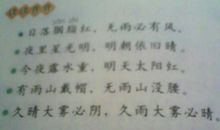 yān zhi
日落胭脂红，无雨必有风。
夜里星光明，明朝依旧晴。
今夜露水重，明天太阳红。
有雨山戴帽，无雨山没腰。
久晴大雾必阴，久雨大雾必晴。